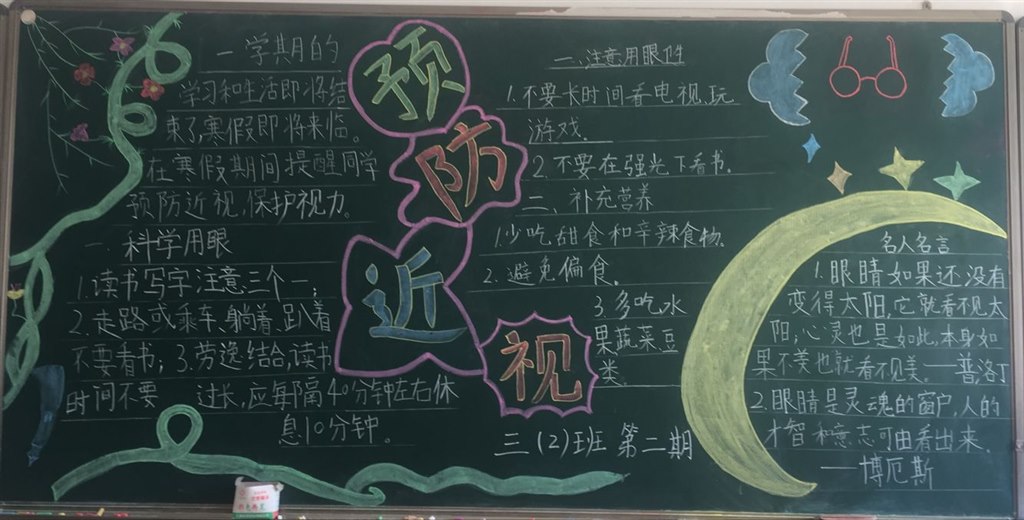 预防近视
一学期的
学习和生活即将结
束了,寒假即将来临。
在寒假期间提醒同学
预防近视,保护视力。
一.科学用眼
1.读书写字注意三个一;
2.走路或乘车、躺着、趴着
不要看书;3.劳逸结合,读书
时间不要 过长,应每隔40分钟左右休
息10分钟。
一.注意用眼卫生
1.不要长时间看电视,玩
游戏.
2.不要在强光下看书.
二、补充营养
1.少吃甜食和辛辣食物.
2.避免偏食.
3.多吃水
果蔬菜豆
类.
三(2)班 第二期
名人名言
1.眼睛如果还没有
变得太阳,它就看不见太
阳,心灵也是如此,本身如
果不美也就看不见美.——普洛丁
2.眼睛是灵魂的窗户,人的
才智和意志可由看出来.
——博厄斯